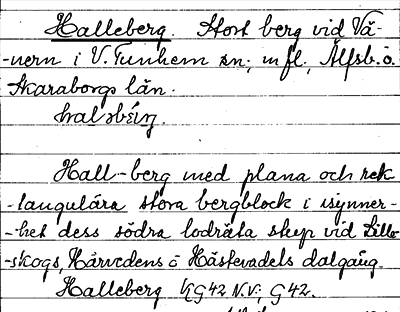 Halleberg. Stort berg vid Vä-
-nern i V. Tunhem sn; m fl, Älfsb. o.
Skaraborgs län.
Hall-berg med plana och rek
-tangulära stora bergblock i synner-
-het dess södra lodräta stup vid Lilla
-skogs, Hårvedens o Hästevadels dalgång.
Halleberg G42 N.V; G42.